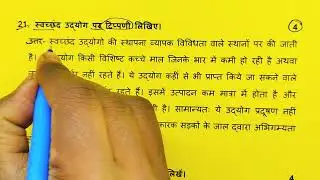 21. स्वच्छंद उद्योग पर टिप्पणी लिखिए। 4
उत्तर- स्वच्छंद उद्योगों की स्थापना व्यापक विविधता वाले स्थानों पर की जाती
है। उद्योग किसी विशिष्ट कच्चे माल जिनके भार में कमी हो रही है अथवा
नहीं रहते हैं। ये उद्योग कहीं से भी प्राप्त किये जा सकने वाले
रहते हैं। इसमें उत्पादन कम मात्रा में होता है और
है। सामान्यतः ये उद्योग प्रदूषण नहीं
कारक सड़कों के जाल द्वारा अभिगम्यता
लिखें। 4